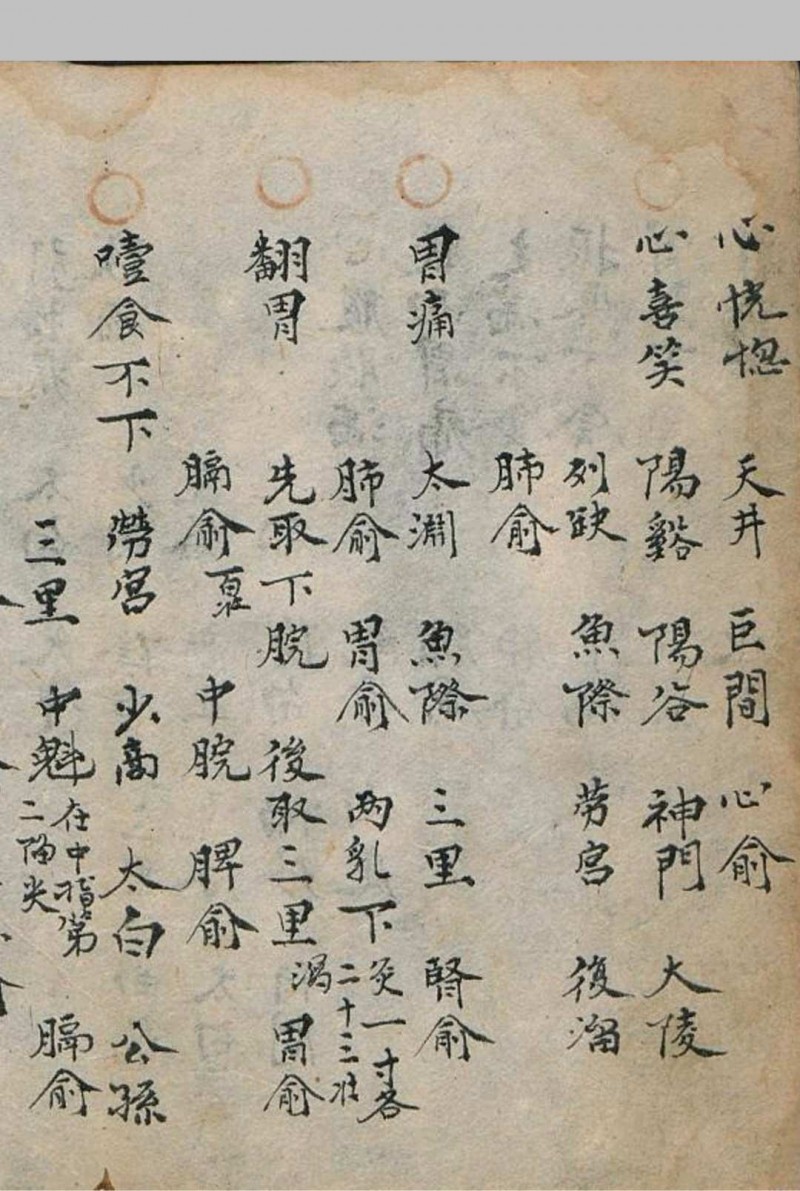 心恍惚 天井 巨闕 心俞
心喜笑 陽谿 陽谷 神門 大陵
列缺 魚際 勞宮 復溜
肺俞
胃痛 太淵 魚際 三里 腎俞
肺俞 胃俞 兩乳下 灸一寸各
二十三壯
翻胃 先取下脘 後取三里瀉 胃俞
膈俞百壯 中脘 脾俞
噎食不下 勞宮 少商 太白 公孫
三里 中魁 在中指第
二節尖 膈俞